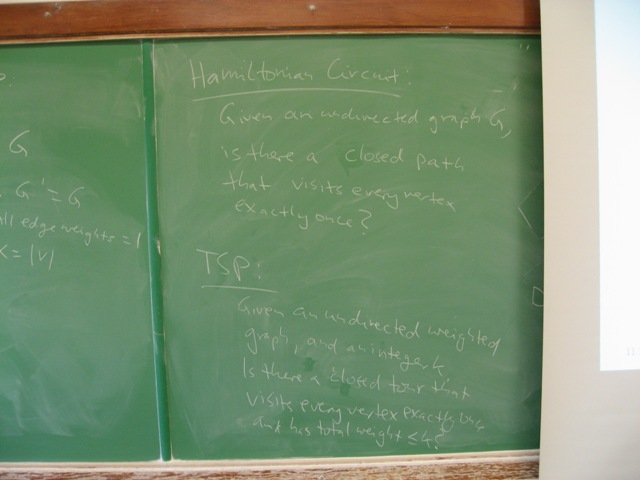 G
G' = G
all edge weights = 1
k = |V|
Hamiltonian Circuit:
Given an undirected graph G,
is there a closed path
that visits every vertex
exactly once?
TSP:
Given an undirected weighted
graph, and an integer k
Is there a closed tour that
visits every vertex exactly once
and has total weight ≤ k?